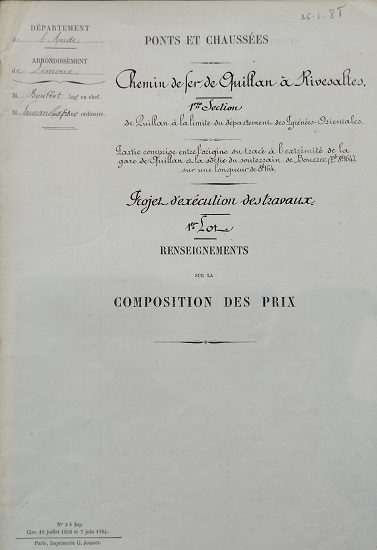 26.1.85
DÉPARTEMENT
de l'Aude
ARRONDISSEMENT
de Limoux
M. Bouffet Ingr en chef.
M. Ingr ordinaire.
PONTS ET CHAUSSÉES
Chemin de fer de Quillan à Rivesaltes.
1ère Section
de Quillan à la limite du département des Pyrénées-Orientales.
Partie comprise entre l'origine du tracé à l'extrémité de la
gare de Quillan et la sortie du souterrain de
sur une longueur de
Projet d'exécution des travaux.
1er Lot
RENSEIGNEMENTS
SUR LA
COMPOSITION DES PRIX
N° 5 b Ing.
Circ. 10 juillet 1858 et 7 juin 1884.
Paris, Imprimerie G. Jousset.